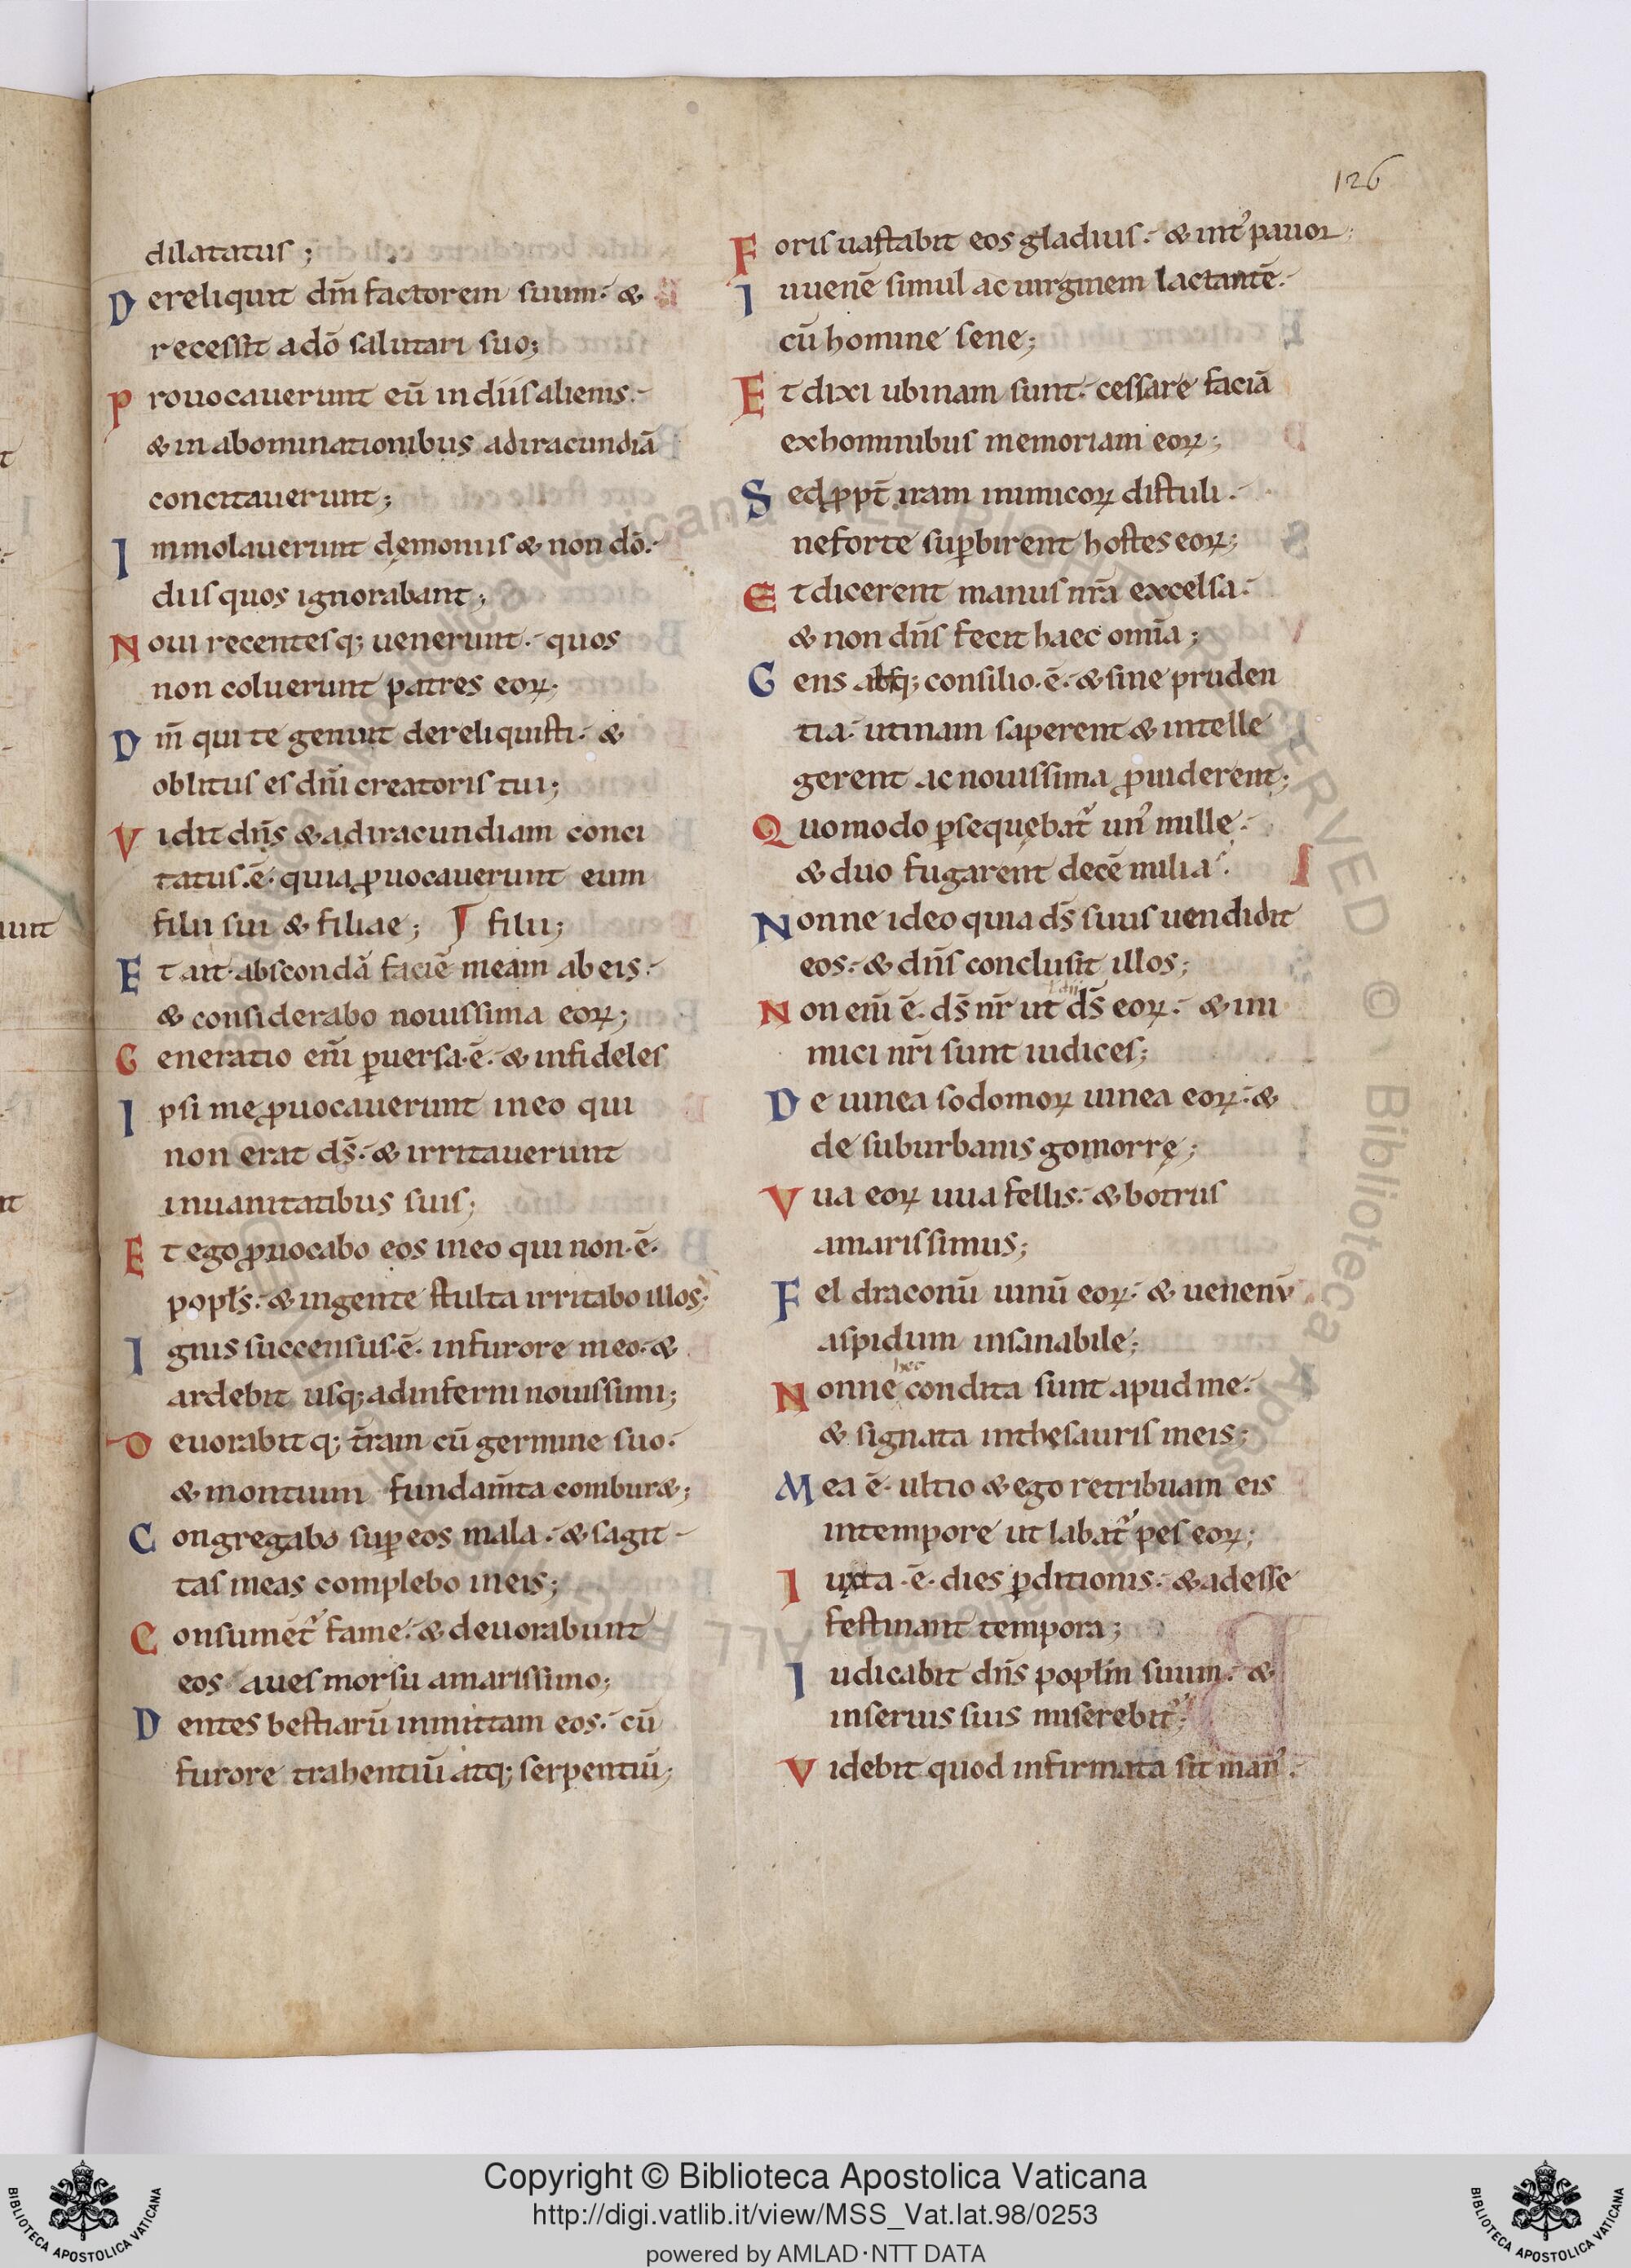 126
dilatatus;
Dereliquit dm̄ factorem suum. &
recessit a dō salutari suo;
Prouocauerunt eū in diis alienis.
& in abominationibus ad iracundiā
concitauerunt;
Immolauerunt dęmoniis & non dō.
diis quos ignorabant;
Noui recentesq; uenerunt. quos
non coluerunt patres eoꝝ.
Dm̄ qui te genuit dereliquisti. &
oblitus es dn̄i creatoris tui;
Vidit dn̄s & ad iracundiam conci
tatus .ē. quia ꝓuocauerunt eum
filii sui & filiae; filii;
Et ait. abscondā faciē meam ab eis.
& considerabo nouissima eoꝝ;
Generatio enī ꝑuersa .ē. & infideles
Ipsi me ꝓuocauerunt in eo qui
non erat ds̄. & irritauerunt
in uanitatibus suis;
Et ego ꝓuocabo eos in eo qui non .ē.
popl̄s. & in gente stulta irritabo illos;
Ignis succensus .ē. in furore meo. &
ardebit usq; ad inferni nouissimi;
Deuorabitq; t̄ram cū germine suo.
& montium fundam̄ta combur&;
Congregabo suꝑ eos mala. & sagit
tas meas complebo in eis;
Consumet᷑ fame. & deuorabunt
eos aues morsu amarissimo;
Dentes bestiarū inmittam eos. cū
furore trahentiū atq; serpentiū;
Foris uastabit eos gladius. & int᷑ pauor;
Iuuenē simul ac uirginem lactantē.
cū homine sene;
Et dixi ubinam sunt. cessare faciā
ex hominibus memoriam eoꝝ;
Sed ꝓpt̄ iram inimicoꝝ distuli.
ne forte suꝑbirent hostes eoꝝ;
Et dicerent manus nr̄a excelsa.
& non dn̄s fecit haec omīa;
Gens absq; consilio .ē. & sine pruden
tia. utinam saperent & intelle
gerent ac nouissima ꝓuiderent;
Quomodo ꝑsequębat᷑ un᷒ mille.
& duo fugarent decē milia.
Nonne ideo quia ds̄ suus uendidit
eos. & dn̄s conclusit illos;
Non enī ē. ds̄ nr̄ ut ds̄ eoꝝ. & ini
mici nr̄i sunt iudices;
De uinea sodomoꝝ uinea eoꝝ. &
de suburbanis gomorrę;
Vua eoꝝ uua fellis. & botrus
amarissimus;
Fel draconū uinū eoꝝ. & uenenū
aspidum insanabile;
hec
Nonne condita sunt apud me.
& signata in thesauris meis;
Mea ē. ultio & ego retribuam eis
in tempore ut labat᷑ pes eoꝝ;
Iuxta .ē. dies ꝑditionis. & adesse
festinant tempora;
Iudicabit dn̄s popl̄m suum. &
in seruis suis miserebit᷑;
Videbit quod infirmata sit man᷒.
Copyright © Biblioteca Apostolica Vaticana
http://digi.vatlib.it/view/MSS_Vat.lat.98/0253
powered by AMLAD·NTT DATA
BIBLIOTECA APOSTOLICA VATICANA
BIBLIOTECA APOSTOLICA VATICANA